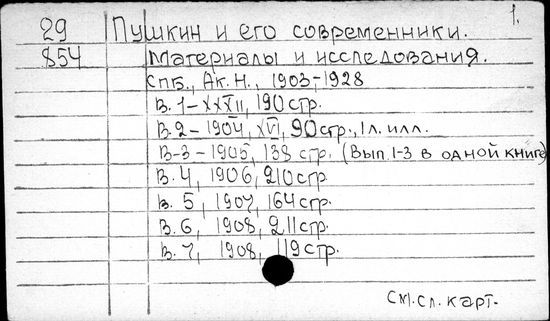 1.
29 Пушкин и его современники.
854 Материалы и исследования.
СПБ., Ак. Н., 1903-1928
В. 1-XXXII, 190 стр.
В-2-1904, XVI, 90 стр., 1 л. илл.
В-3-1905, 138 стр. (Вып. 1-3 в одной книге)
В. 4, 1906, 210 стр.
В. 5, 1907, 164 стр.
В. 6, 1908, 211 стр.
В. 7, 1908, 119 стр.
См. сл. карт.